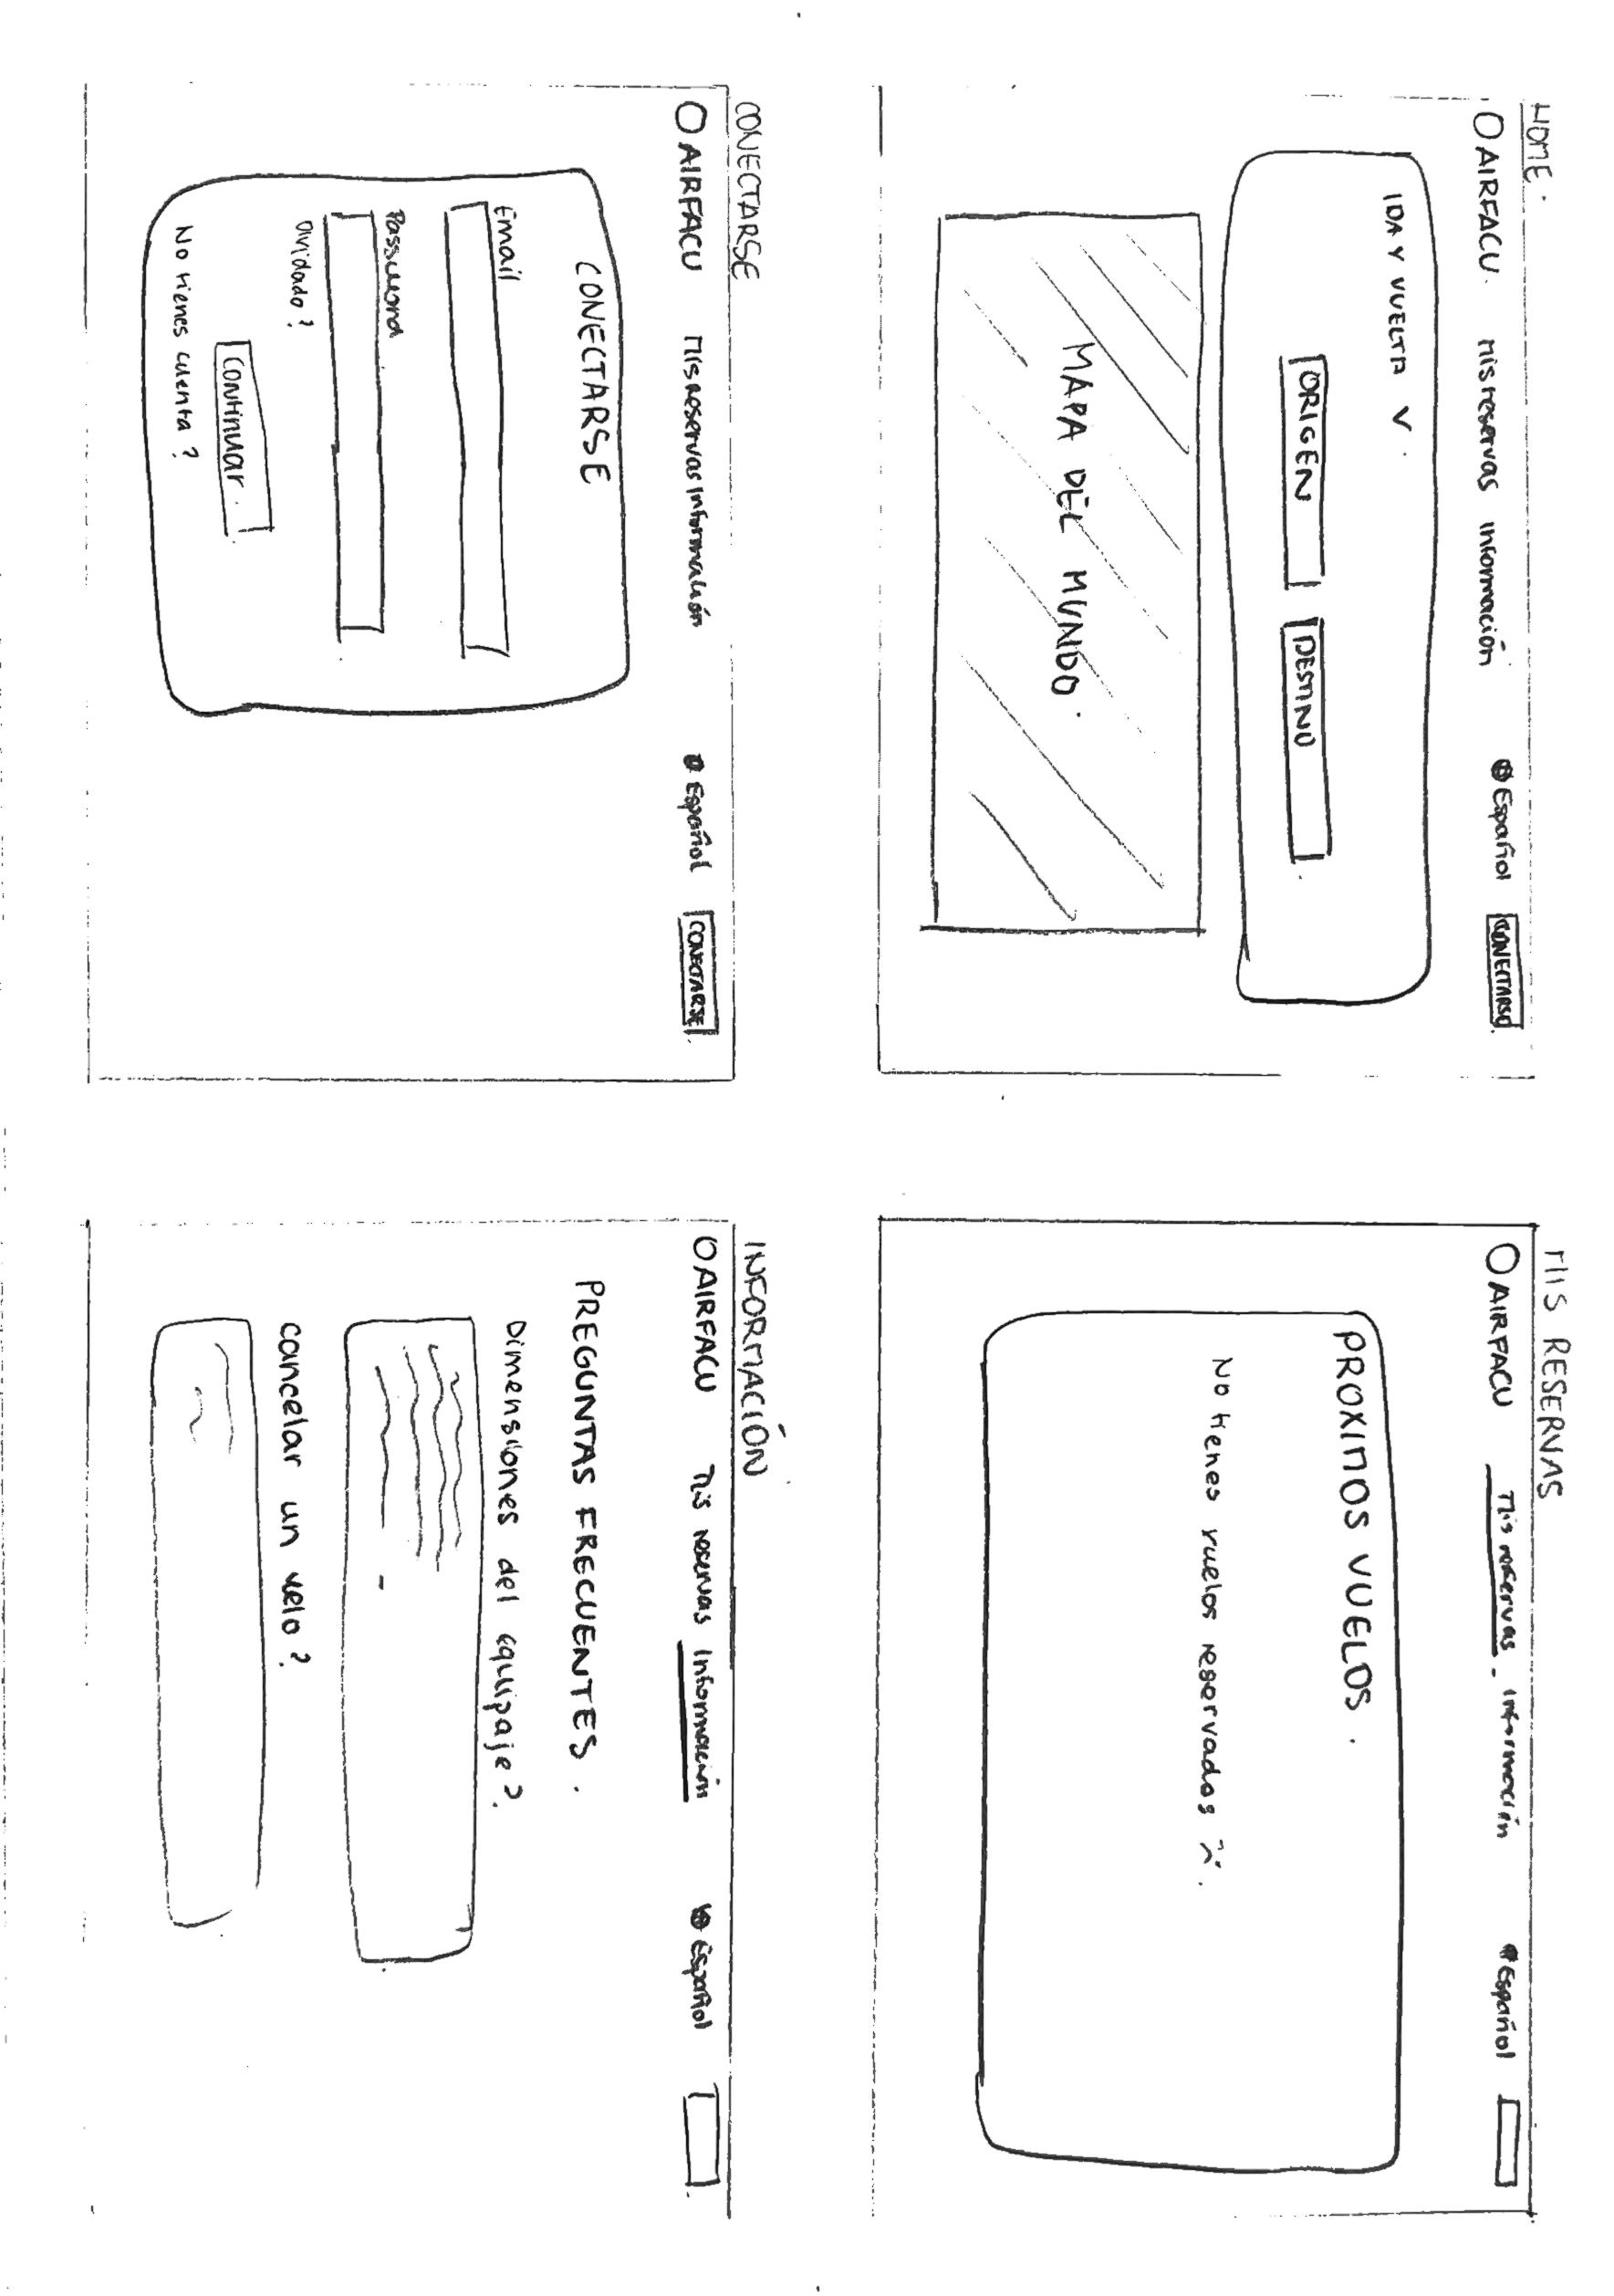 HOME.
AIRFACU. Mis reservas Información Español CONECTARSE
IDA Y VUELTA
ORIGEN DESTINO
MAPA DEL MUNDO.
MIS RESERVAS
AIRFACU Mis reservas. Información Español
PROXIMOS VUELOS.
No tienes vuelos reservados
CONECTARSE
AIRFACU Mis reservas Información Español CONECTARSE
CONECTARSE
Email
Password
Olvidado?
Continuar.
No tienes cuenta?
INFORMACIÓN
AIRFACU Mis reservas Información Español
PREGUNTAS FRECUENTES.
Dimensiones del equipaje?
cancelar un velo?